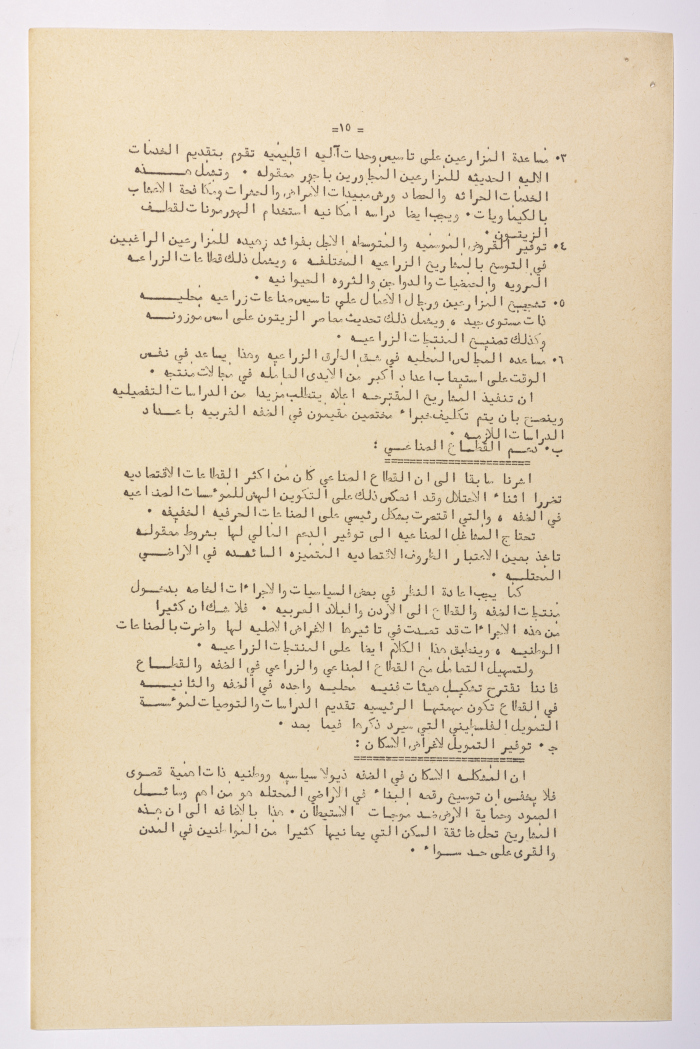 = ١٥ =
٣٠ مساعدة المزارعين على تاسيس وحدات آليه اقليميه تقوم بتقديم الخدمات
الاليه الحديثه للمزارعين المجاورين باجور معقوله ٠ وتشمل هـــذه
الخدمات الحراثه والحصاد ورش مبيدات الامراض والحشرات ومكافحة الاعشاب
بالكيماويات ٠ ويجب ايضا دراسه امكانيه استخدام الهورمونات لقطف
الزيتون ٠
٤٠ توفير القروض الموسميه والمتوسطه الاجل بفوائد زهيده للمزارعين الراغبين
في التوسع بالمشاريع الزراعيه المختلفه ، ويشمل ذلك قطاعات الزراعه
المرويه والحمضيات والدواجن والثروه الحيوانيه ٠
٥٠ تشجيع المزارعين ورجال الاعمال على تاسيس صناعات زراعيه محليــه
ذات مستوى جيد ، ويشمل ذلك تحديث معاصر الزيتون على اسس موزونــه
وكذلك تصنيع المنتجات الزراعيه ٠
٦٠ مساعده المجالس المحليه في شق الطرق الزراعيه وهذا يساعد في نفس
الوقت على استيعاب اعداد اكبر من الايدى العامله في مجالات منتجه ٠
ان تنفيذ المشاريع المقترحه اعلاه يتطلب مزيدا من الدراسات التفصيليه
وينصح بان يتم تكليف خبراء مختصين مقيمون في الضفه الغربيه باعــداد
الدراسات اللازمه ٠
ب٠ دعــم القطــاع الصناعــي :
========================
اشرنا سابقا الى ان القطاع الصناعي كان من اكثر القطاعات الاقتصاديه
تضررا اثناء الاحتلال وقد انعكس ذلك على التكوين الهش للمؤسسات الصناعيه
في الضفه ، والتي اقتصرت بشكل رئيسي على الصناعات الحرفيه الخفيفه ٠
تحتاج المشاغل الصناعيه الى توفير الدعم المالي لها بشروط معقولــه
تاخذ بعين الاعتبار الظروف الاقتصاديه المتميزه السائــده في الاراضــي
المحتلــه ٠
كما يجب اعادة النظر في بعض السياسيات والاجراءات الخاصه بدخــول
منتجات الضفه والقطاع الى الاردن والبلاد العربيه ٠ فلا شك ان كثيرا
من هذه الاجراءات قد تعدت في تاثيرها الاغراض الاصليه لها واضرت بالصناعات
الوطنيه ، وينطبق هذا الكلام ايضا على المنتجات الزراعيه ٠
ولتسهيل التعامل مع القطاع الصناعي والزراعي في الضفه والقطــاع
فاننا نقترح تشكيــل هيئات فنيــه محليه واحده في الضفه والثانيــه
في القطاع تكون مهمتها الرئيسيه تقديم الدراسات والتوصيات لمؤســسة
التمويل الفلسطيني التي سيرد ذكرها فيما بعد ٠
جـ ٠ توفير التمويل لاغراض الاسكان :
============================
ان لمشكله الاسكان في الضفه ذيولا سياسيه ووطنيه ذات اهمية قصوى
فلا يخفى ان توسيع رقعه البناء في الاراضي المحتله هو من اهم وسائــل
الصمود وحماية الارض ضد موجات الاستيطان ٠ هذا بالاضافه الى ان هــذه
المشاريع تحل ضائقة السكن التي يعانيها كثيرا من المواطنين في المدن
والقرى على حــد ســواء ٠